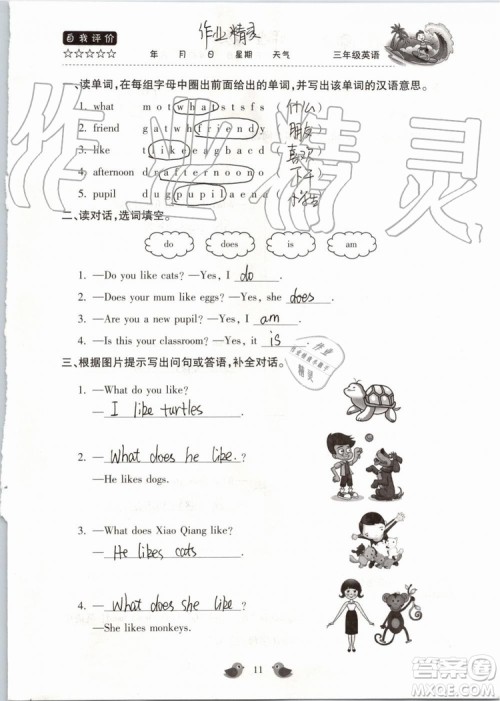 自我评价
作业精灵
☆☆☆☆☆ 年 月 日 星期 天气 三年级英语
一、读单词，在每组字母中圈出前面给出的单词，并写出该单词的汉语意思。
1. what m o t w h a t s t s f s （什么）
2. friend g a t w h f r i e n d y （朋友）
3. like t l i k e e a g b a c d （喜欢）
4. afternoon d r a f t e r n o o n o （下午）
5. pupil d u g p u p i l a e n a （小学生）
二、读对话，选词填空。
do does is am
1. —Do you like cats? —Yes, I do.
2. —Does your mum like eggs? —Yes, she does.
3. —Are you a new pupil? —Yes, I am.
4. —Is this your classroom? —Yes, it is.
三、根据图片提示写出问句或答语，补全对话。
1. —What do you like?
—I like turtles.
2. —What does he like?
—He likes dogs.
3. —What does Xiao Qiang like?
—He likes cats.
4. —What does she like?
—She likes monkeys.
11
作业精灵
答案圈
MXQE.COM